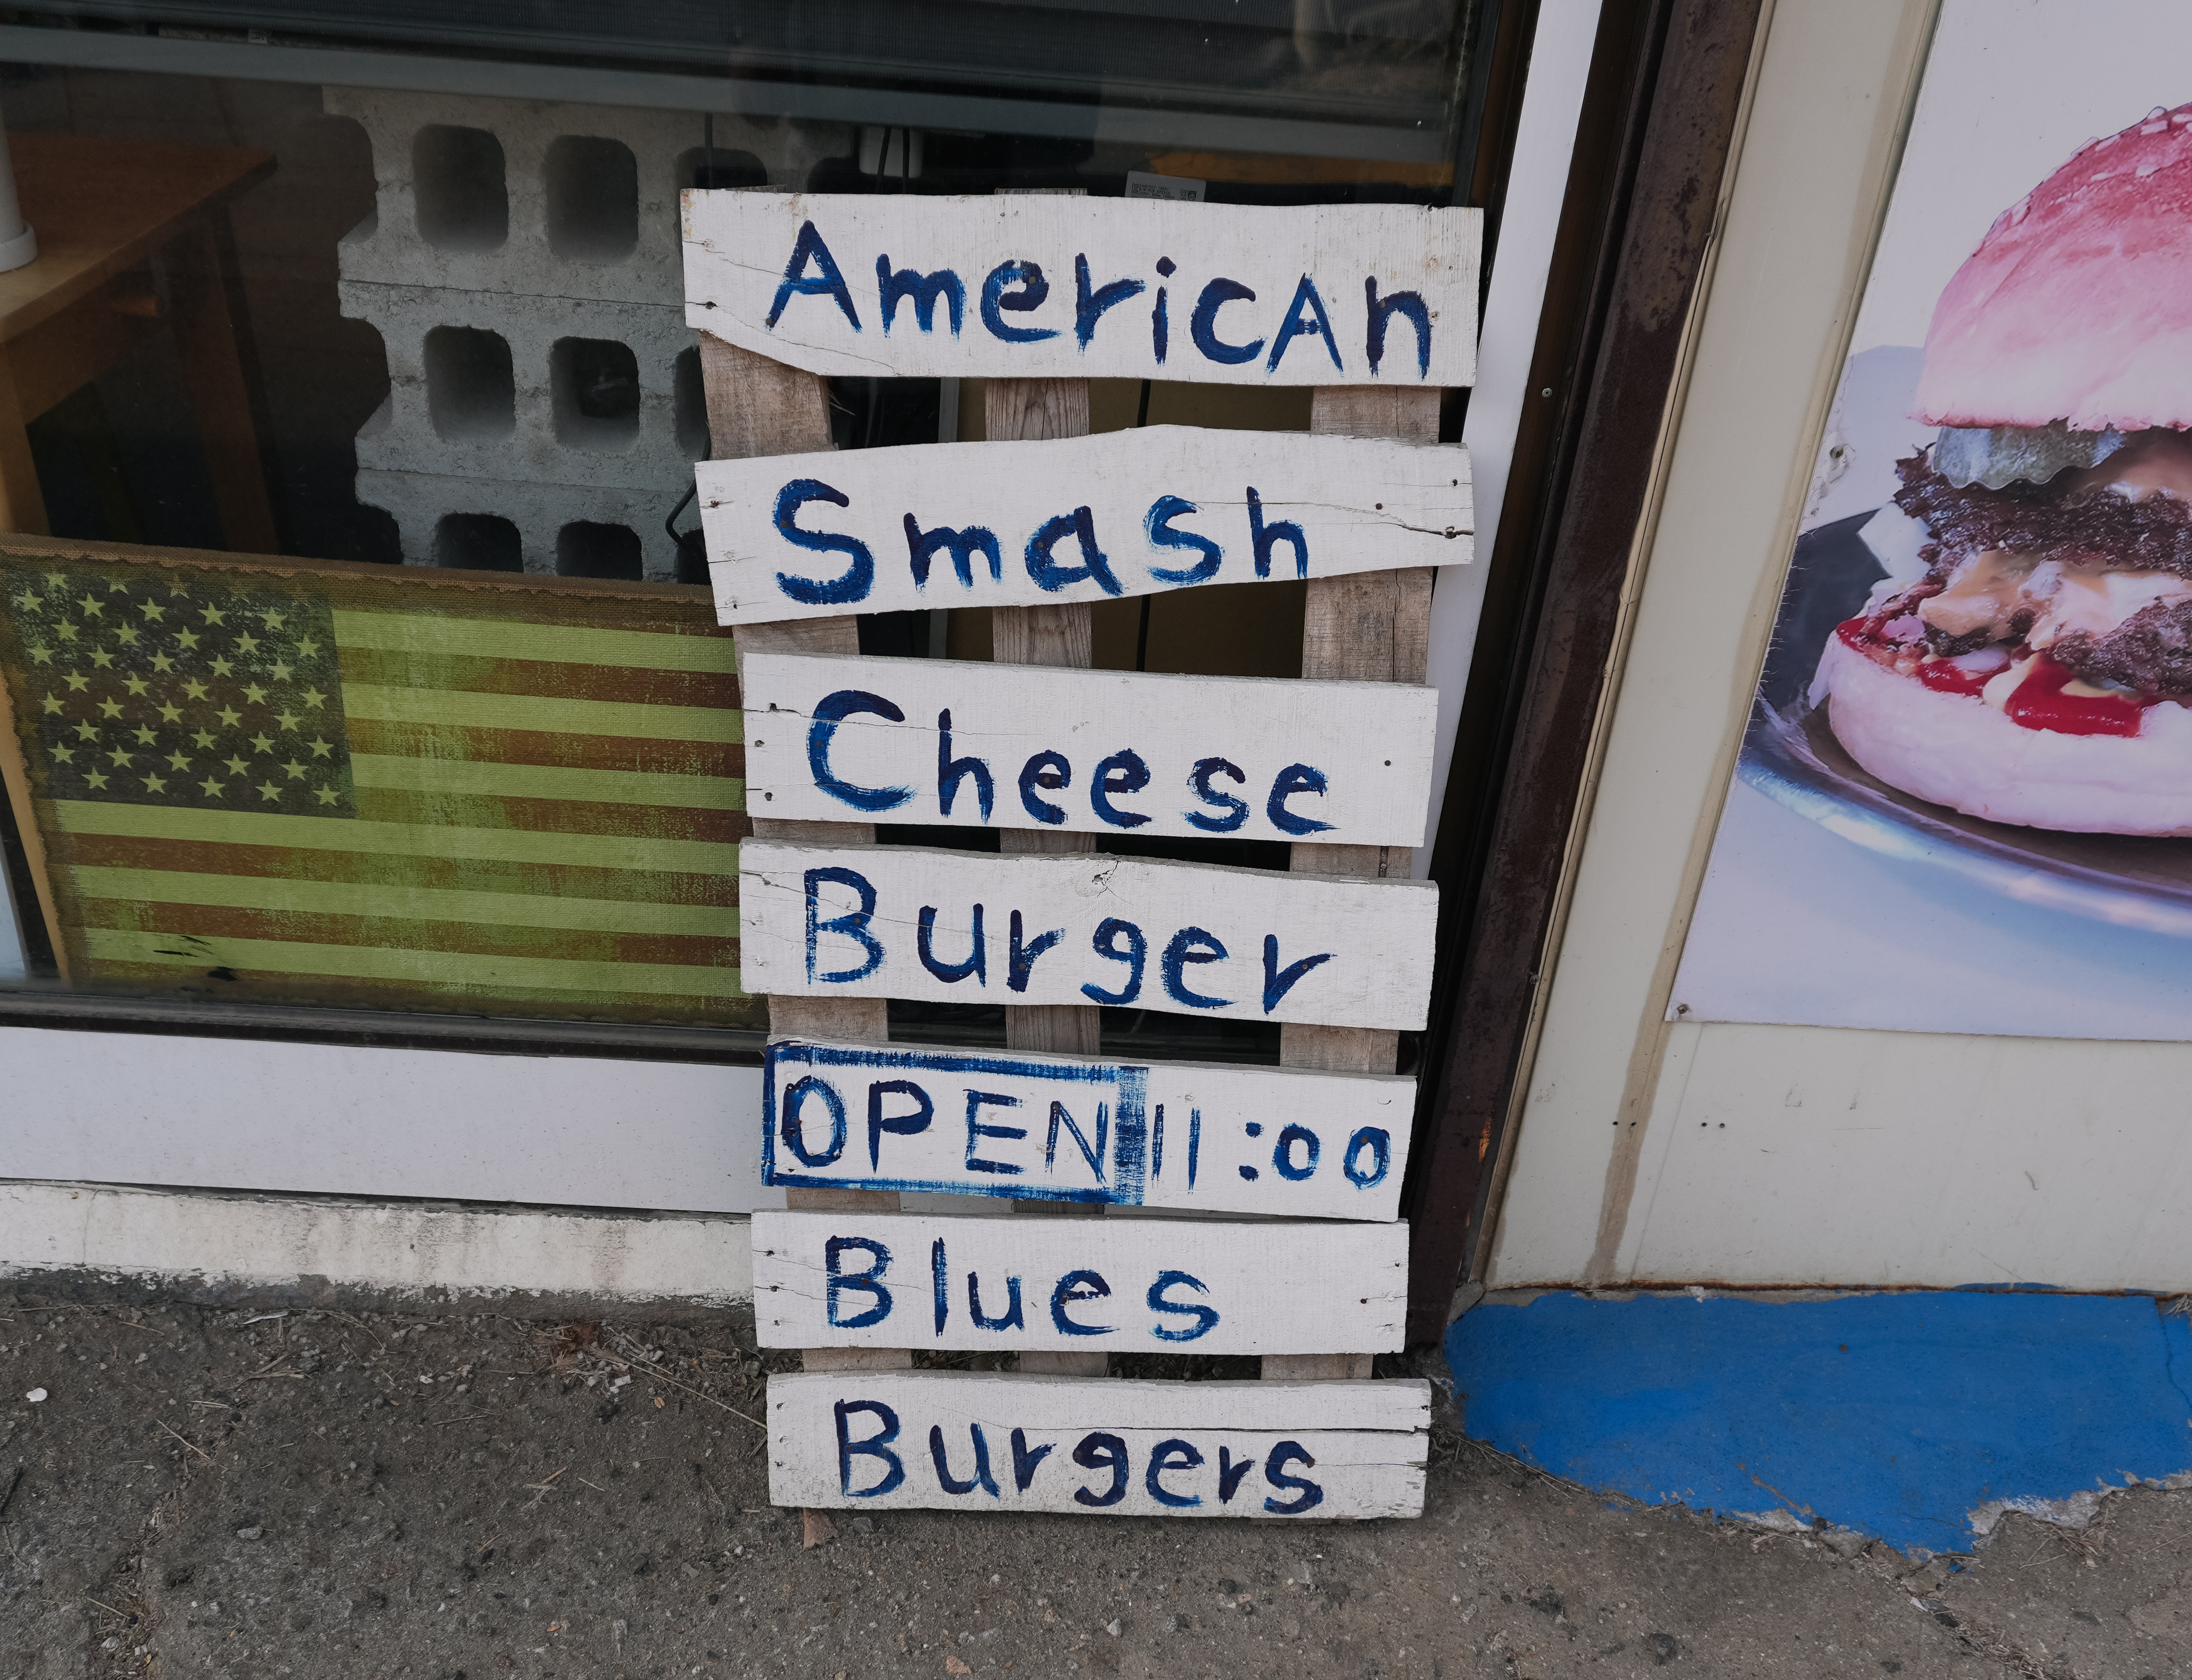 AmericAn
Smash
Cheese
Burger
OPEN 11:00
Blues
Burgers